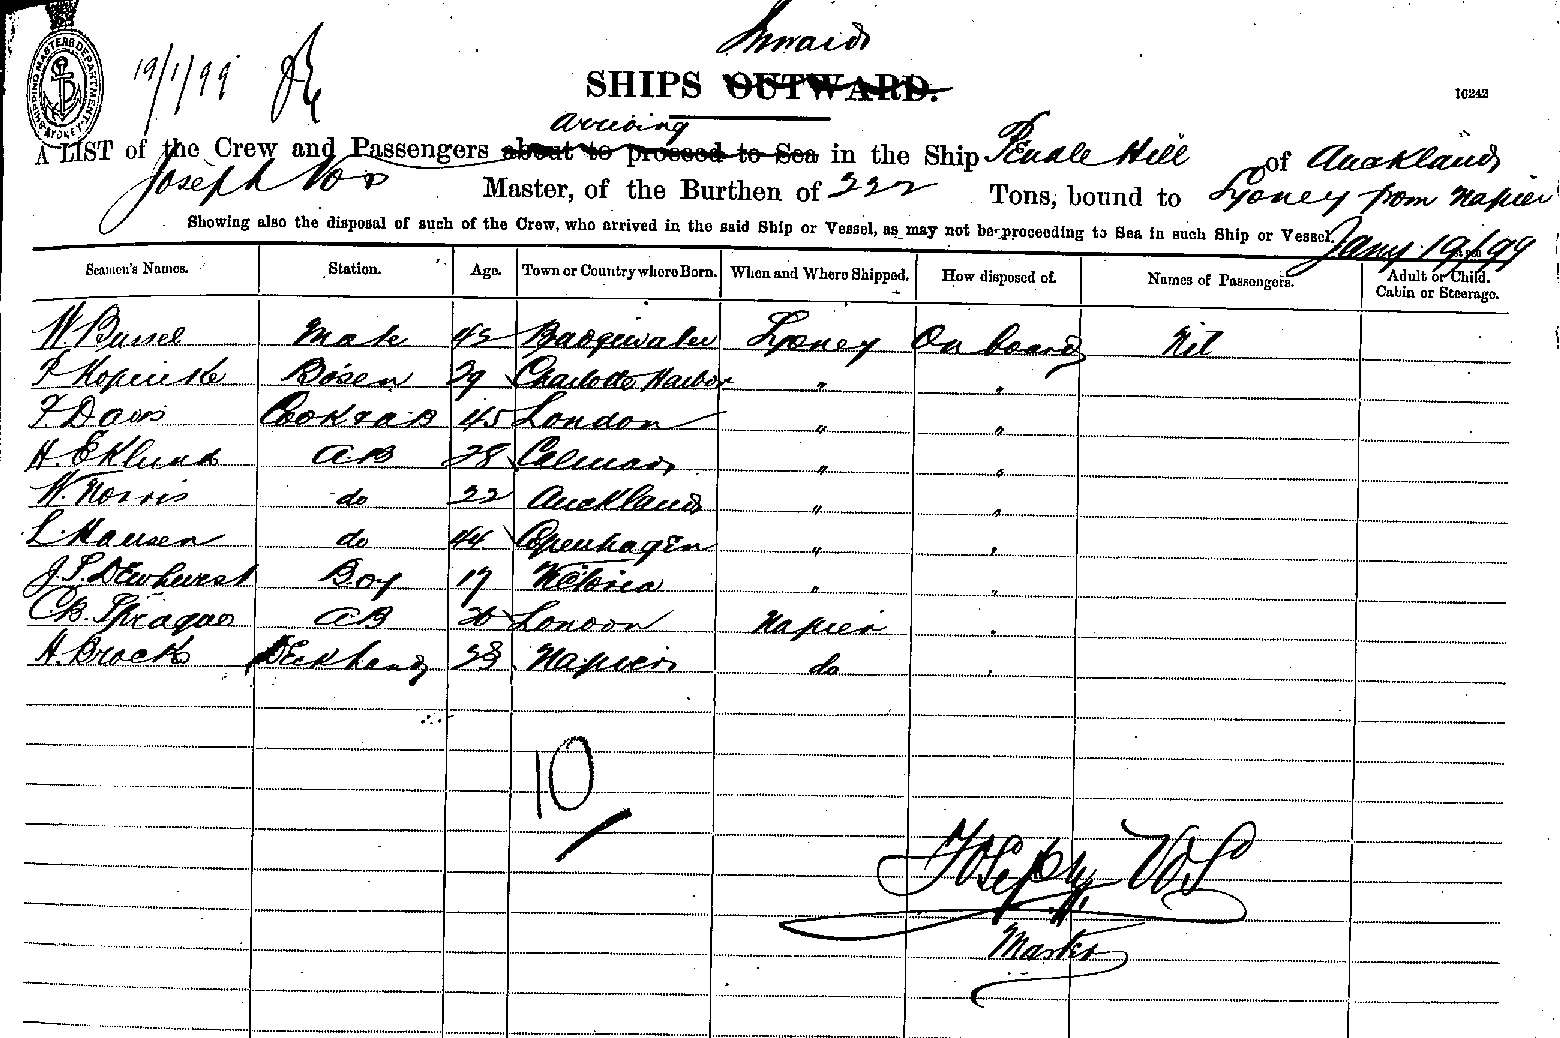 Inwards
SHIPPING MASTERS DEPARTMENT SYDNEY
19/1/99
SHIPS OUTWARD.
10242
arriving
A LIST of the Crew and Passengers about to proceed to Sea in the Ship Pendle Hill of Auckland
Joseph Vos Master, of the Burthen of 222 Tons, bound to Sydney from Napier
Showing also the disposal of such of the Crew, who arrived in the said Ship or Vessel, as may not be proceeding to Sea in such Ship or Vessel.
Jany 19/99
Seamen's Names. Station. Age. Town or Country where Born. When and Where Shipped. How disposed of. Names of Passengers. Adult or Child. Cabin or Steerage.
W. Mate 42 Bridgewater Sydney On board Nil
F. Bosen 29 Charlotte Harbor " "
F. Davis Cook & AB 45 London " "
H. Eklund AB 28 Calmar " "
W. Norris do 22 Auckland " "
L. Hansen do 44 Copenhagen " "
J. S. Dewhurst Boy 17 Victoria " "
C. B. Sprague AB London Napier "
H. Brock Deckhand 23 Napier do "
10
Joseph Vos
Master